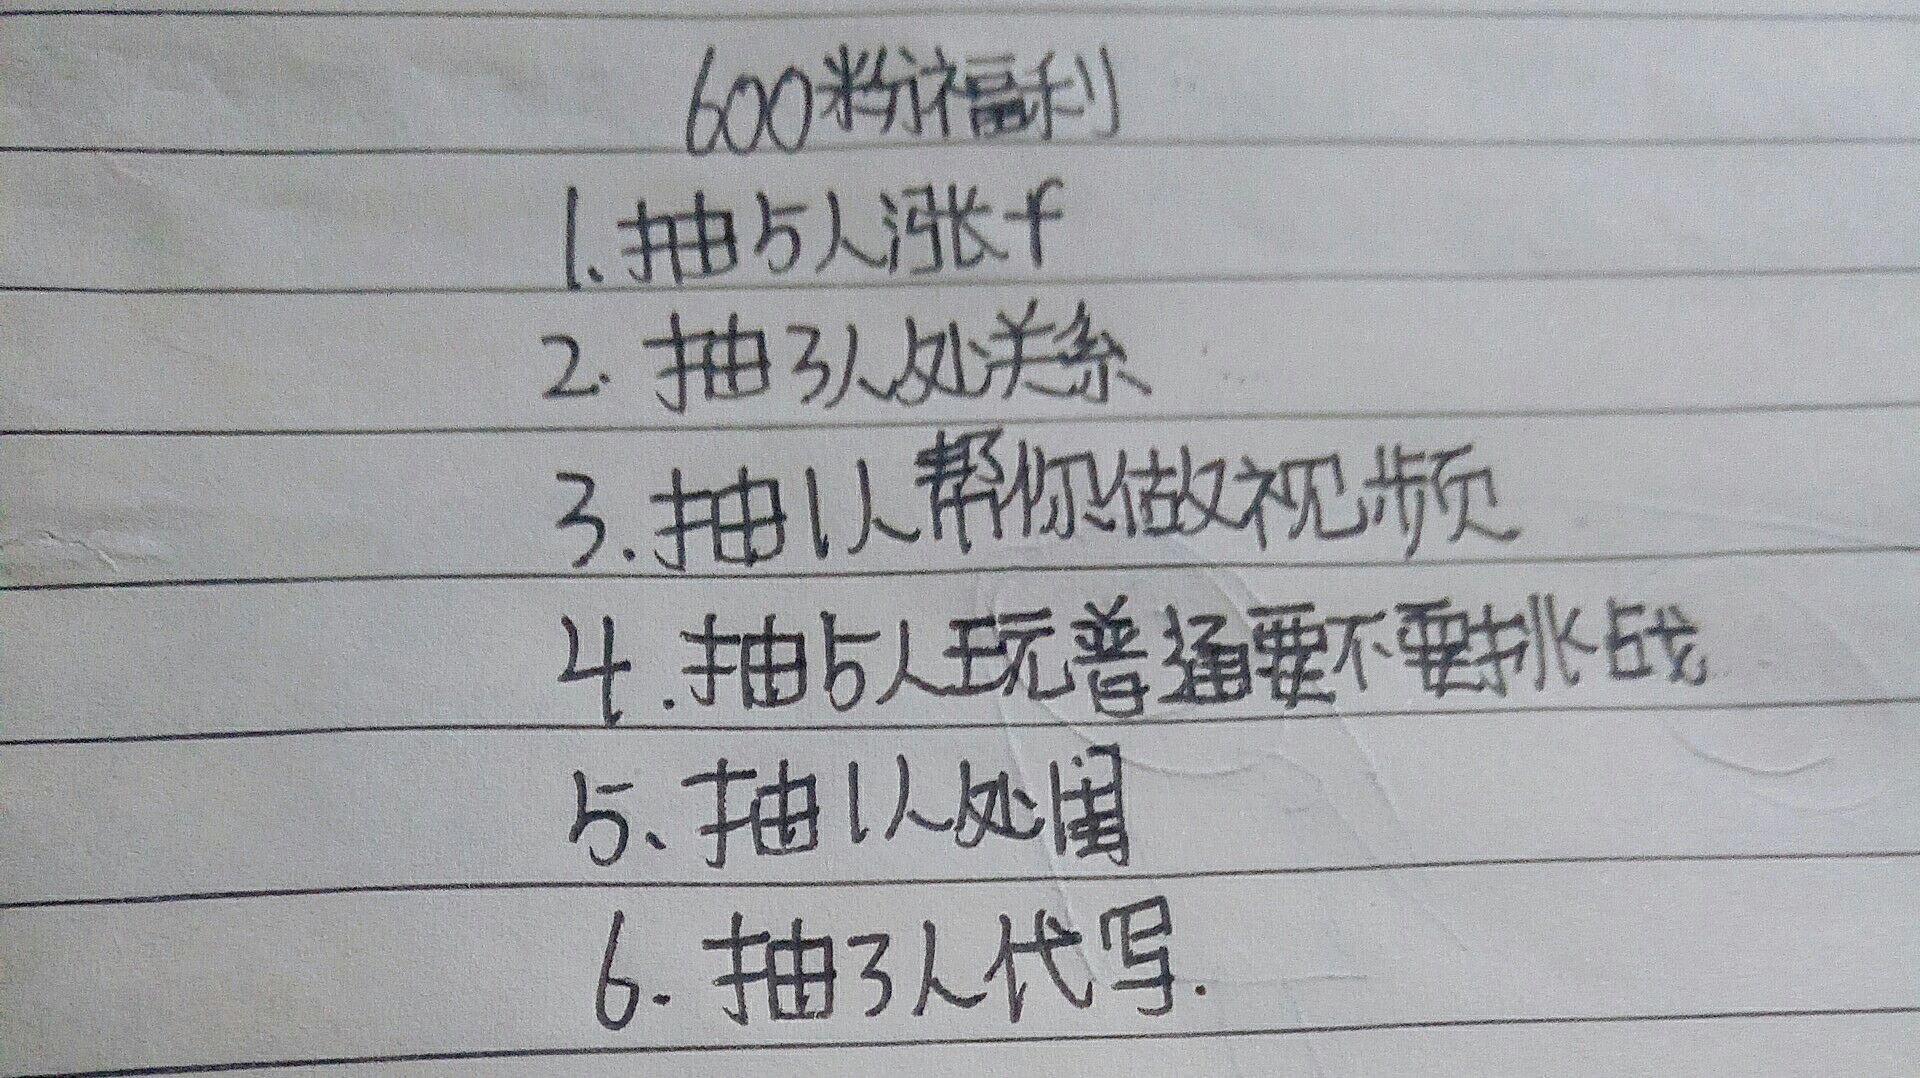 600粉福利
1.抽5人涨f
2.抽3人处关系
3.抽1人帮你做视频
4.抽5人玩普通要不要挑战
5、抽1人处闺
6.抽3人代写.